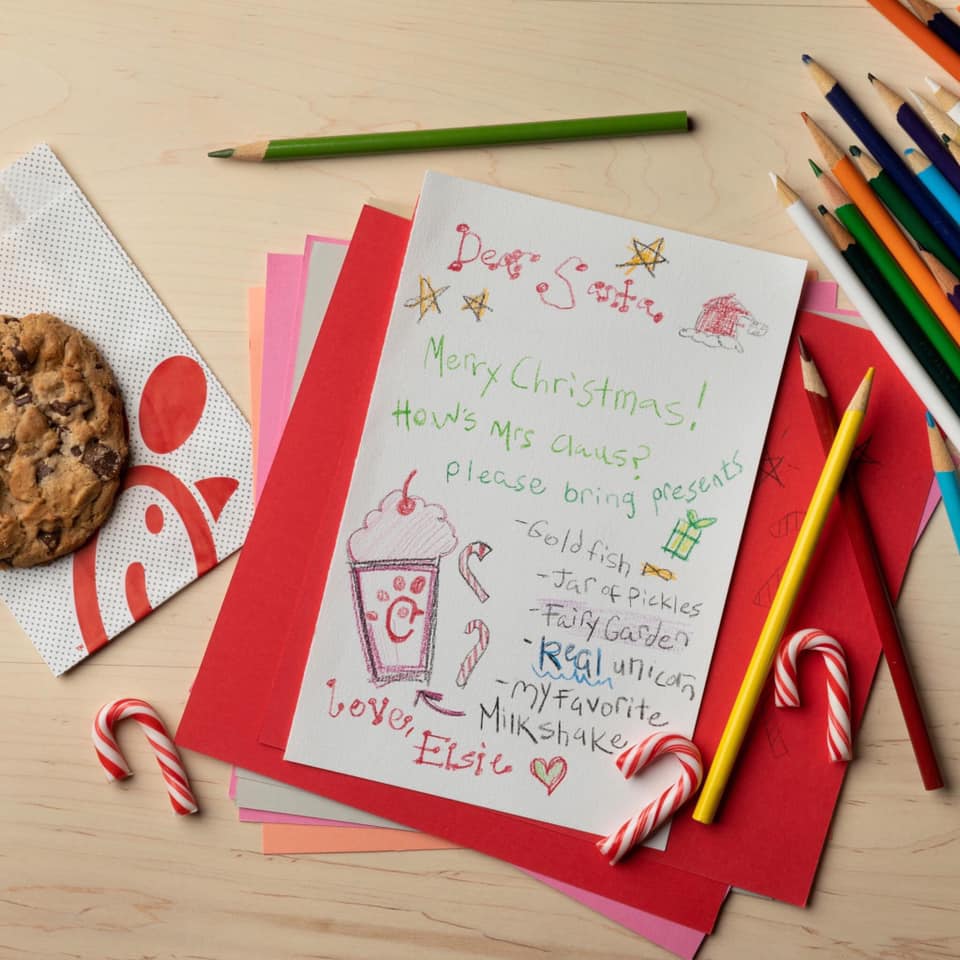 Dear Santa,
Merry Christmas!
How's Mrs Claus?
please bring presents
- Goldfish
- Jar of Pickles
- Fairy Garden
- Real unicorn
- my Favorite
Milkshake
Love,
Elsie